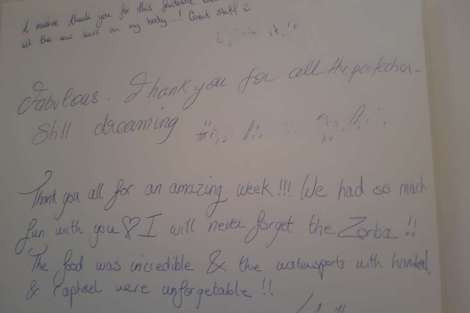 thank you for this fantastic
all the on my body...! Great stuff
Fabulous. Thank you for all the perfection.
Still dreaming
Thank you all for an amazing week!!! We had so much
fun with you ♡ I will never forget the Zorba !!
The food was incredible & the watersports with
& Raphael were unforgetable !!